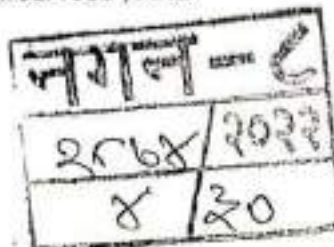 नगन - ८
२८७४/२०२२
४/३०